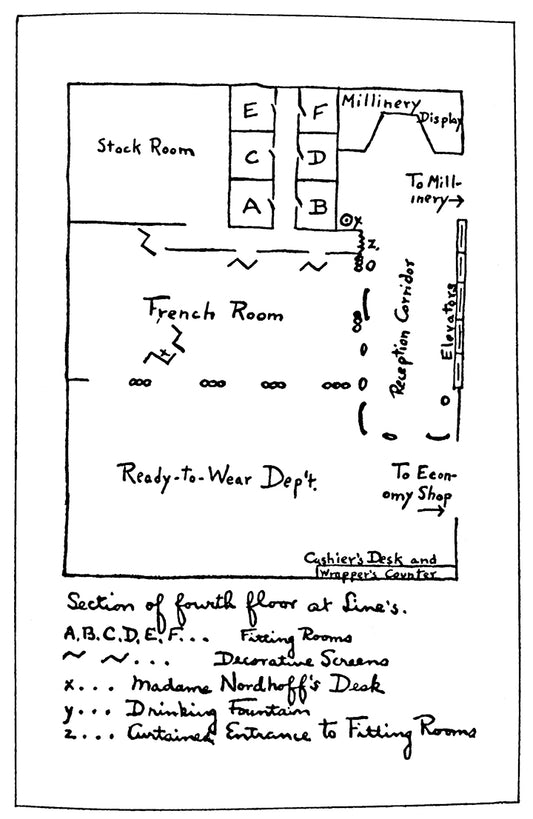 E
F
Millinery
Display
Stock Room
C
D
To Mill-
inery→
A
B
y
z.
French Room
Reception Corridor
Elevators
x
Ready-to-Wear Dep't.
To Econ-
omy Shop
Cashier's Desk and
Wrapper's Counter
Section of fourth floor at Line's.
A, B, C, D, E, F... Fitting Rooms
... Decorative Screens
x... Madame Nordhoff's Desk
y... Drinking Fountain
z... Curtained Entrance to Fitting Rooms